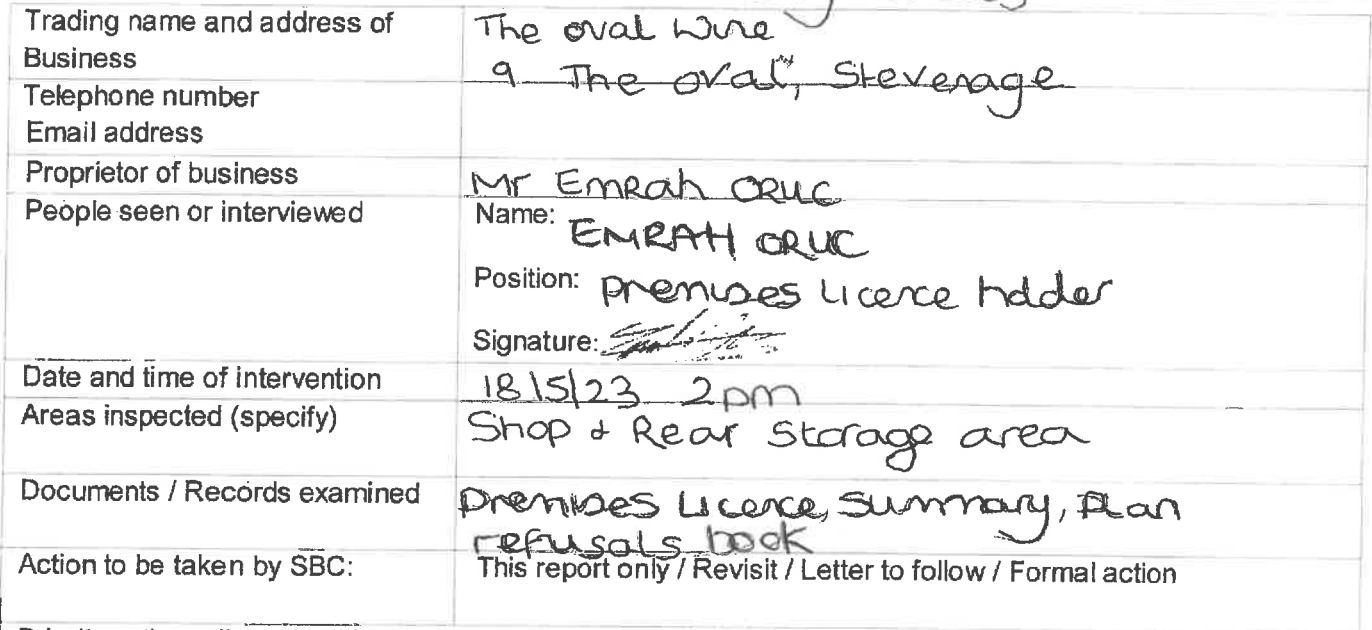 Trading name and address of
Business
The oval Wine
9 The oval, Stevenage
Telephone number
Email address
Proprietor of business
Mr Emrah ORUC
People seen or interviewed
Name: EMRAH ORUC
Position: premises licence holder
Signature:
Date and time of intervention
18/5/23 2pm
Areas inspected (specify)
Shop & Rear Storage area
Documents / Records examined
Premises Licence, Summary, Plan
refusals book
Action to be taken by SBC:
This report only / Revisit / Letter to follow / Formal action